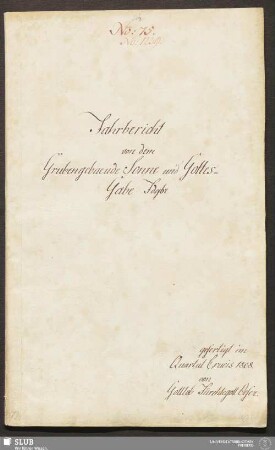 No: 75.
Fahrbericht
von dem
Grubengebaeude Sonne und Gottes-
Gabe Fdgbr
gefertigt im
Quartal Crucis 1808.
von
Gottlob Fürchtegott
SLUB
Wir führen Wissen.